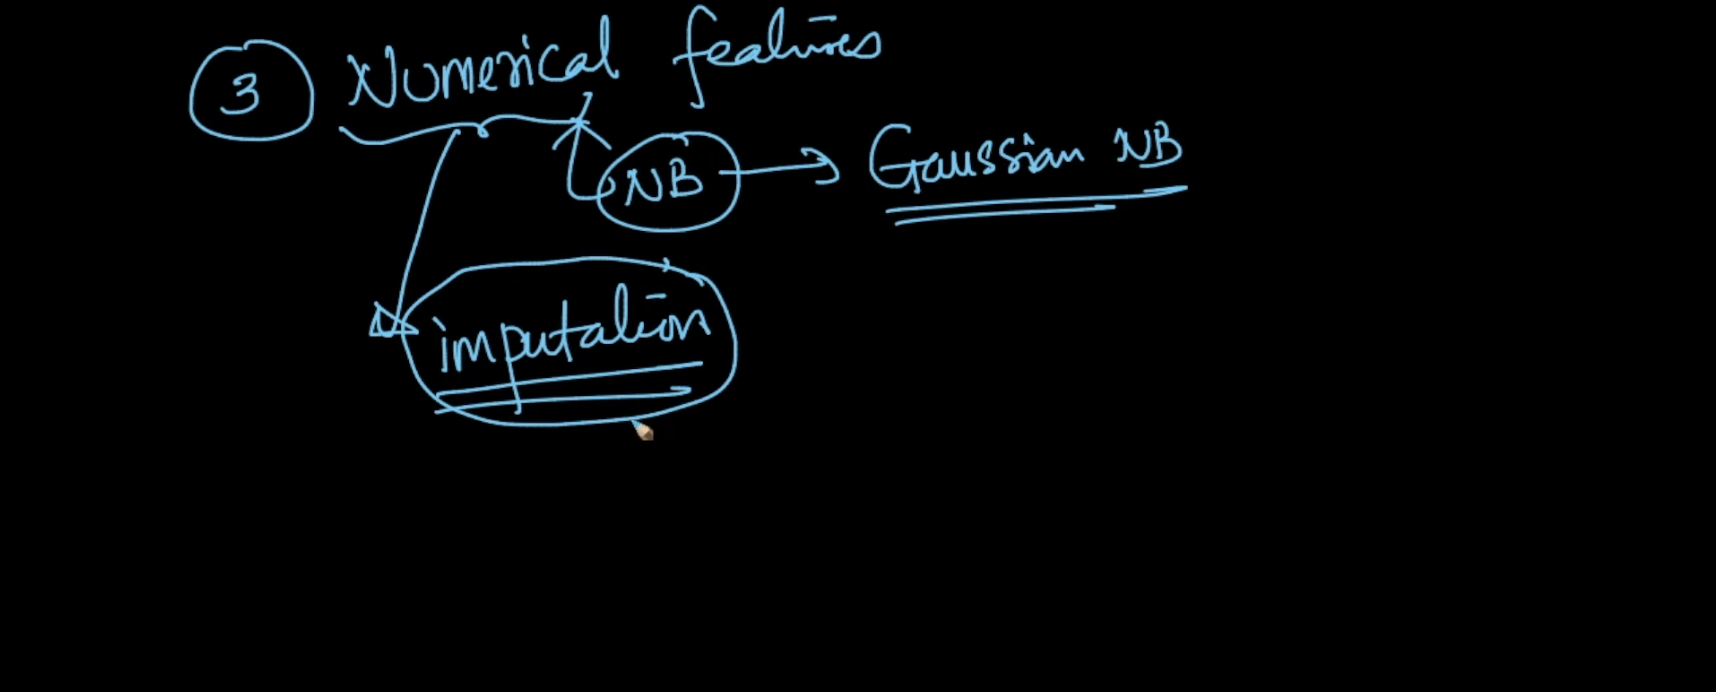 3 Numerical features
NB → Gaussian NB
imputation